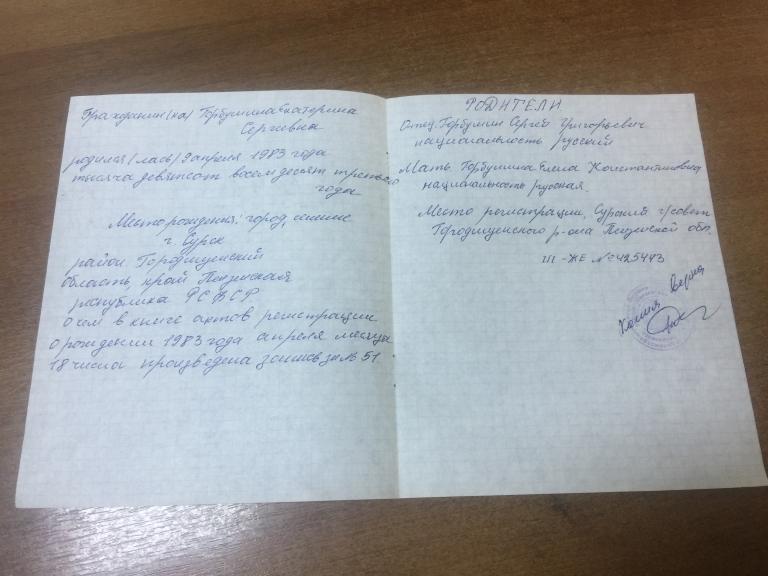 Гражданин(ка) Горбушина Екатерина
Сергеевна
родился(лась) 9 апреля 1983 года
тысяча девятсот восемьдесят третьего
года
Место рождения: город, селение
г. Сурск
район Городищенский
область, край Пензенская
республика РСФСР
о чем в книге актов регистрации
о рождении 1983 года апреля месяца
18 числа произведена запись за № 51
РОДИТЕЛИ
Отец Горбушин Сергей Григорьевич
национальность русский
Мать Горбушина Елена Константиновна
национальность русская.
Место регистрации, Сурский г/совет
Городищенского р-она Пензенской обл.
III-ЖЕ № 425493
Копия верна